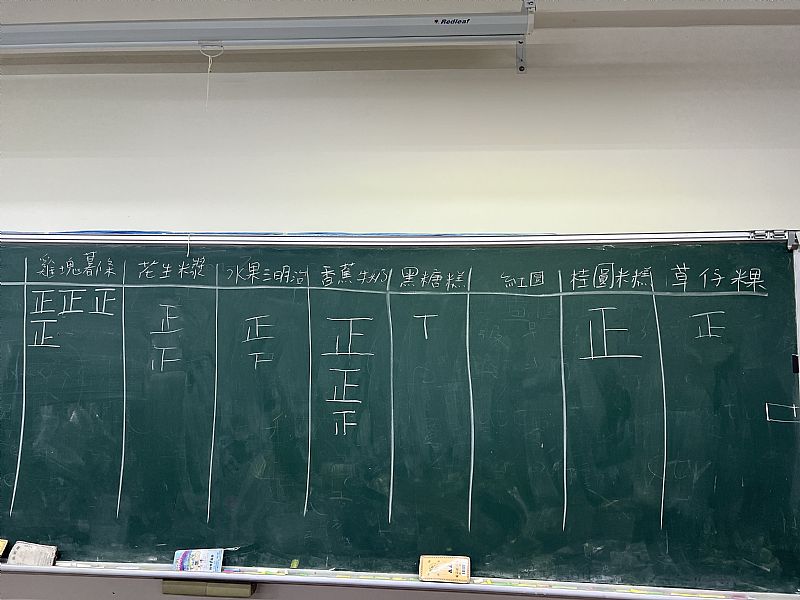 Redleaf
雞塊暮條 花生米漿 水果三明治 香蕉牛奶 黑糖糕 紅圓 桂圓米糕 草仔粿
正正正 正 正 正 T 正 正
正 正 下 正
正